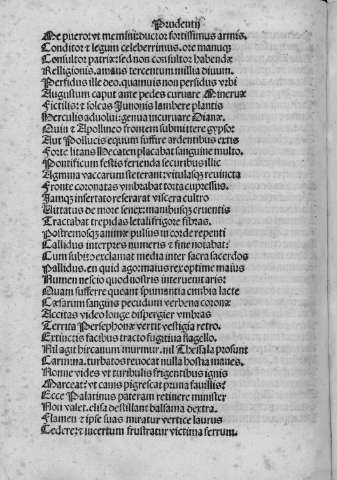 Prudentij
Me puero: vt memini: ductor fortissimus armis.
Conditor & legum celeberrimus. ore manuqȝ
Consultor patriæ: sed non consultor habendæ
Relligionis. amans tercentum millia diuum.
Perfidus ille deo. quamuis non perfidus vrbi
Augustum caput ante pedes curuare Mineruæ
Fictilis: & soleas Junonis lambere plantis
Herculis aduolui: genua incuruare Dianæ.
Quin & Apollineo frontem submittere gypso:
Aut Pollucis equum suffire ardentibus extis
Forte litans Hecaten placabat sanguine multo.
Pontificum festis ferienda securibus illic
Agmina vaccarum steterant: vitulasqȝ reuincta
Fronte coronatas vmbrabat torta cupressus.
Jamqȝ insertato reserarat viscera cultro
Vittatus de more senex: manibusqȝ cruentis
Tractabat trepidas letali frigore fibras.
Postremosqȝ animæ pulsus in corde repenti
Callidus interpres numeris & fine notabat:
Cum subito exclamat media inter sacra sacerdos
Pallidus. en quid ago: maius rex optime maius
Numen nescio quod nostris interuenit aris:
Quam sufferre queant spumantia cimbia lacte
Cæsarum sanguis pecudum verbena coronæ
Accitas video longe dispergier vmbras
Territa Persephonæ vertit vestigia retro.
Extinctis facibus tracto fugitiua flagello.
Nil agit hircanum murmur. nil Thessala prosunt
Carmina. turbatos reuocat nulla hostia manes.
Nonne vides vt turibulis frigentibus ignis
Marceat: vt canis pigrescat pruna fauillis:
Ecce Palatinus pateram retinere minister
Non valet. elisa destillant balsama dextra.
Flamen & ipse suas miratur vertice laurus
Cedere: & incertum frustratur victima ferrum.